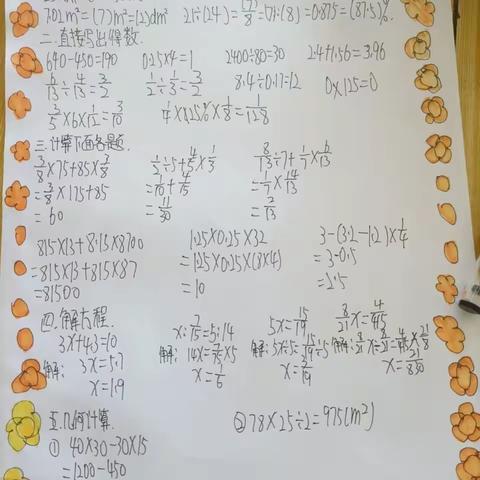 7.02m²=(7)m²=(2)dm² 21÷(24)=(7)/8=(7):(8)=0.875=(87.5)%
二.直接写出得数.
640-450=190 0.25×4=1 2400÷80=30 2.4+1.56=3.96
6/13÷4/13=3/2 1/2÷1/3=3/2 8.4÷0.7=12 0×125=0
3/5×6×1/12=3/10
三.计算下面各题.
3/8×75+85×3/8 1/2÷5+4/5×1/3 8/13÷7+1/7×6/13
=3/8×175+85 =1/10+4/15 =1/7×14/13
=60 =11/30 =2/13
815×13+8.15×8700 1.25×0.25×32 3-(3.2-1.2)×1/4
=815×13+815×87 =1.25×0.25×(8×4) =3-0.5
=81500 =10 =2.5
四.解方程.
3x+4.3=10 x:7/15=5:14 5x=15/19 8/21x=4/45
解: 3x=5.7 解:14x=7/15×5
x=1.9 x=1/6
五.几何计算.
① 40×30-30×15 ②78×25÷2=975(m²)
=1200-450